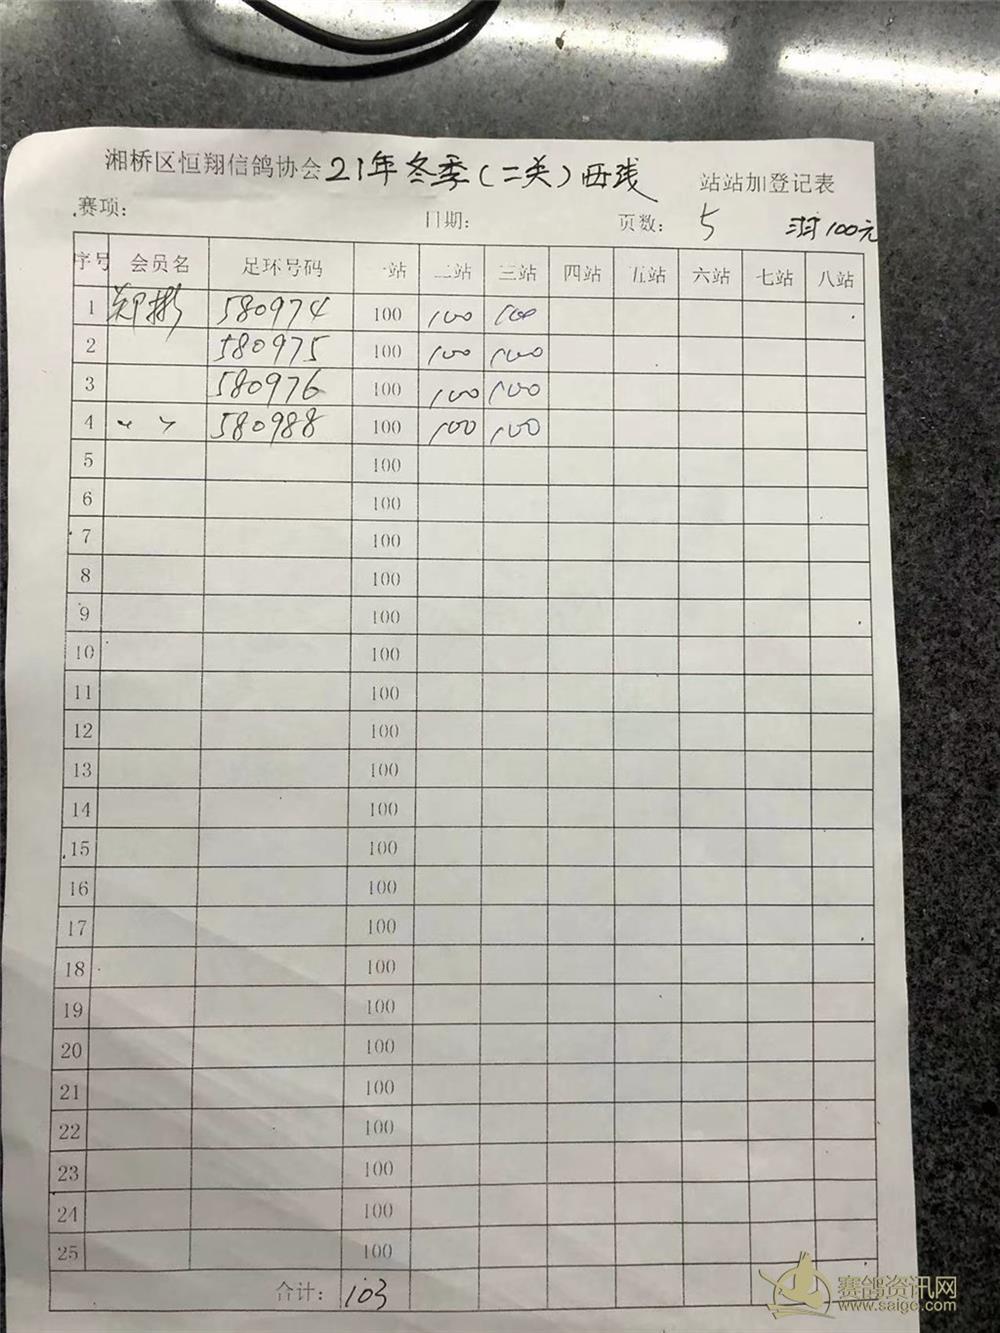 湘桥区恒翔信鸽协会 21年冬季(二关)西线 站站加登记表
赛项: 日期: 页数: 5 100元
序号 会员名 足环号码 一站 二站 三站 四站 五站 六站 七站 八站
1 郑彬 580974 100 100 100
2 580975 100 100 100
3 580976 100 100 100
4 580988 100 100 100
5 100
6 100
7 100
8 100
9 100
10 100
11 100
12 100
13 100
14 100
15 100
16 100
17 100
18 100
19 100
20 100
21 100
22 100
23 100
24 100
25 100
合计: 103
赛鸽资讯网
www.saige.com